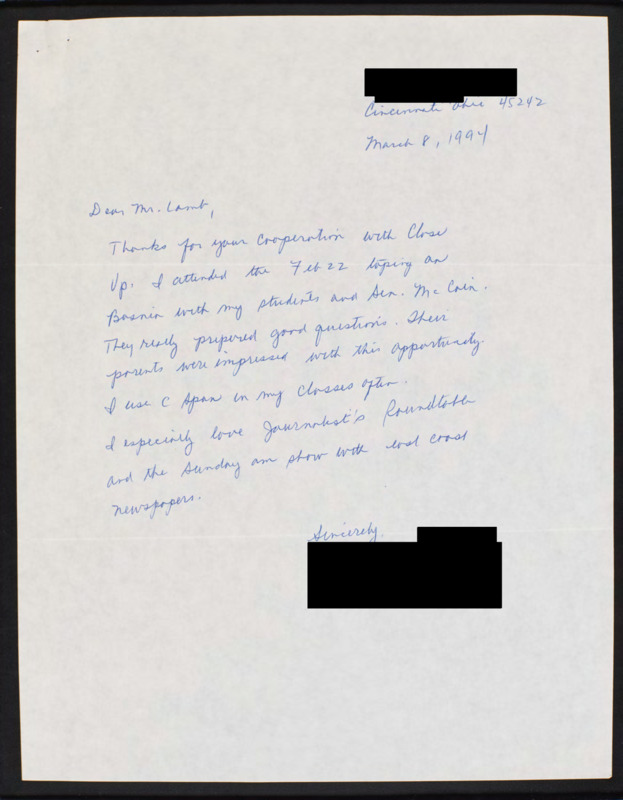 Cincinnati Ohio 45242
March 8, 1994
Dear Mr. Lamb,
Thanks for your cooperation with Close
Up. I attended the Feb 22 taping on
Bosnia with my students and Sen. McCain.
They really prepared good questions. Their
parents were impressed with this opportunity.
I use C Span in my classes often.
I especially love Journalist's Roundtable
and the Sunday am show with east coast
newspapers.
Sincerely,